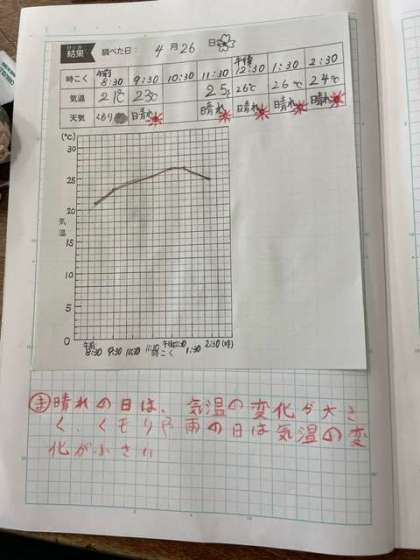 けっか
結果 調べた日： 4月26日
時こく 午前8:30 9:30 10:30 11:30 午後12:30 1:30 2:30
気温 21℃ 23℃ 25℃ 26℃ 26℃ 24℃
天気 くもり 日晴れ 晴れ 晴れ 晴れ 晴れ
(℃)
30
25
20
気温
15
10
5
0
午前8:30 9:30 10:30 11:30 午後12:30 1:30 2:30 (時)
時こく
ま 晴れの日は、気温の変化が大き
く、くもりや雨の日は気温の変
化が小さい